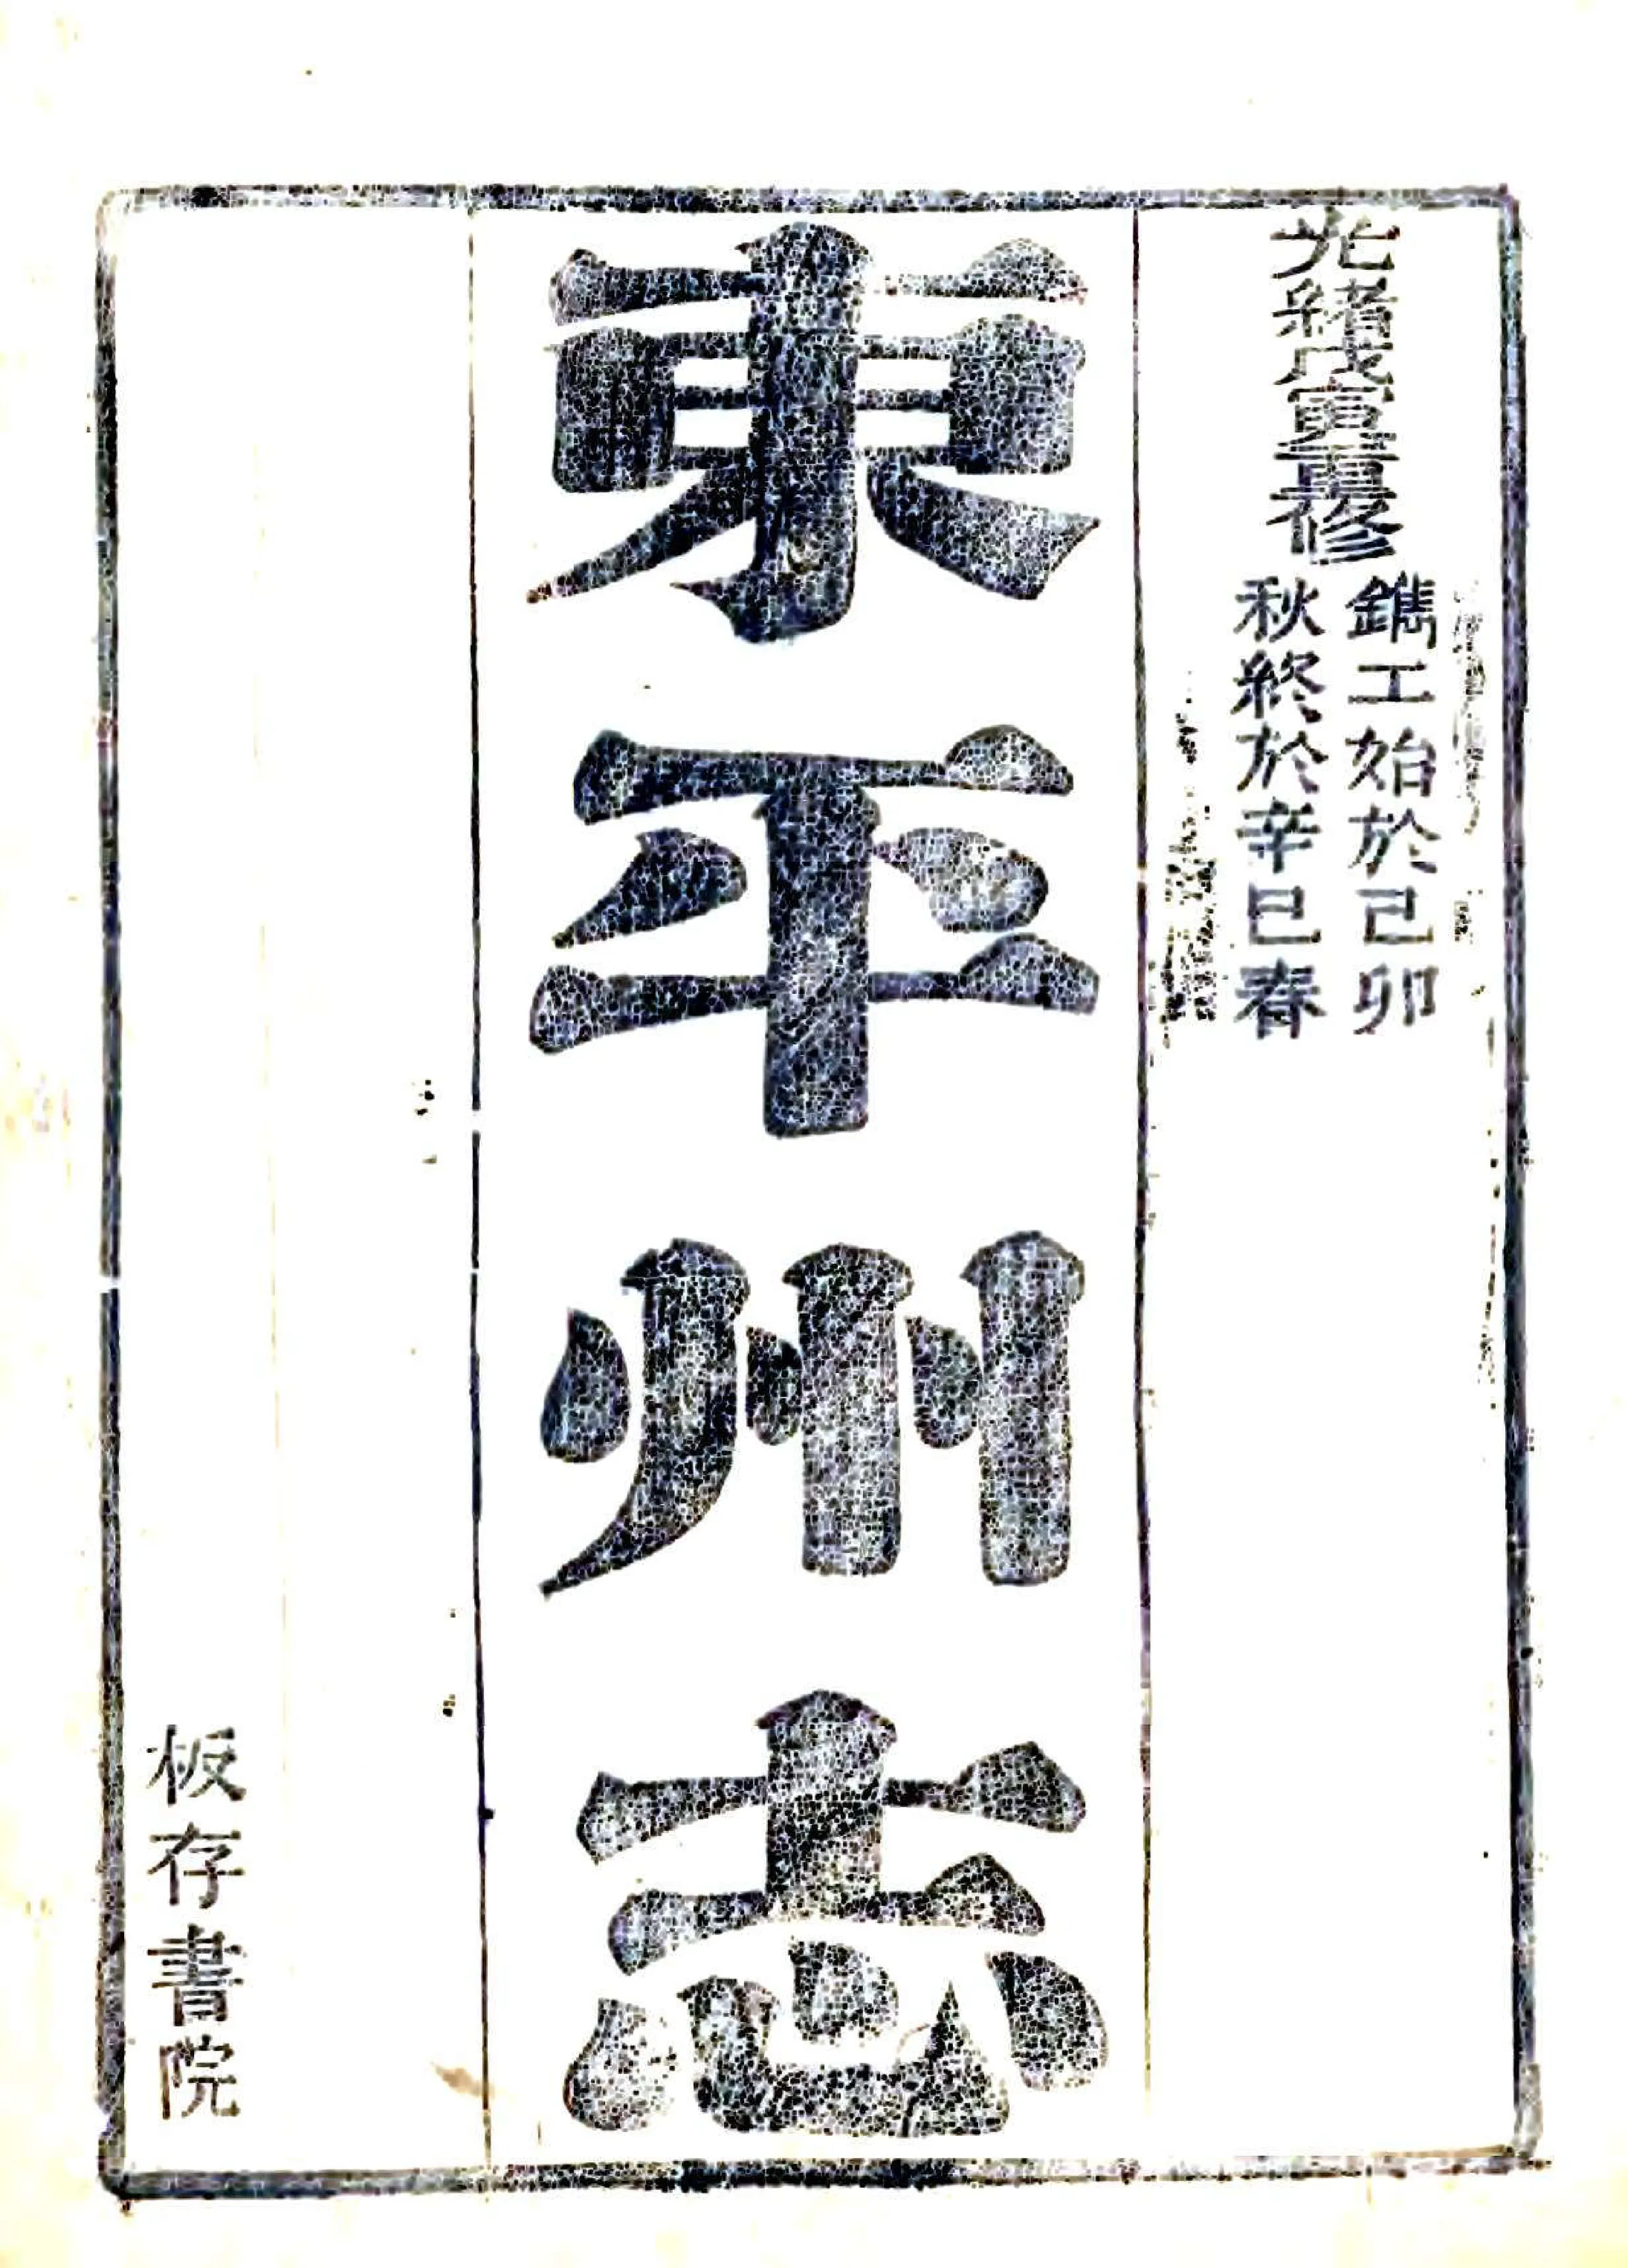 光緒戊寅重修
鐫工始於己卯
秋終於辛巳春
東平州志
板存書院